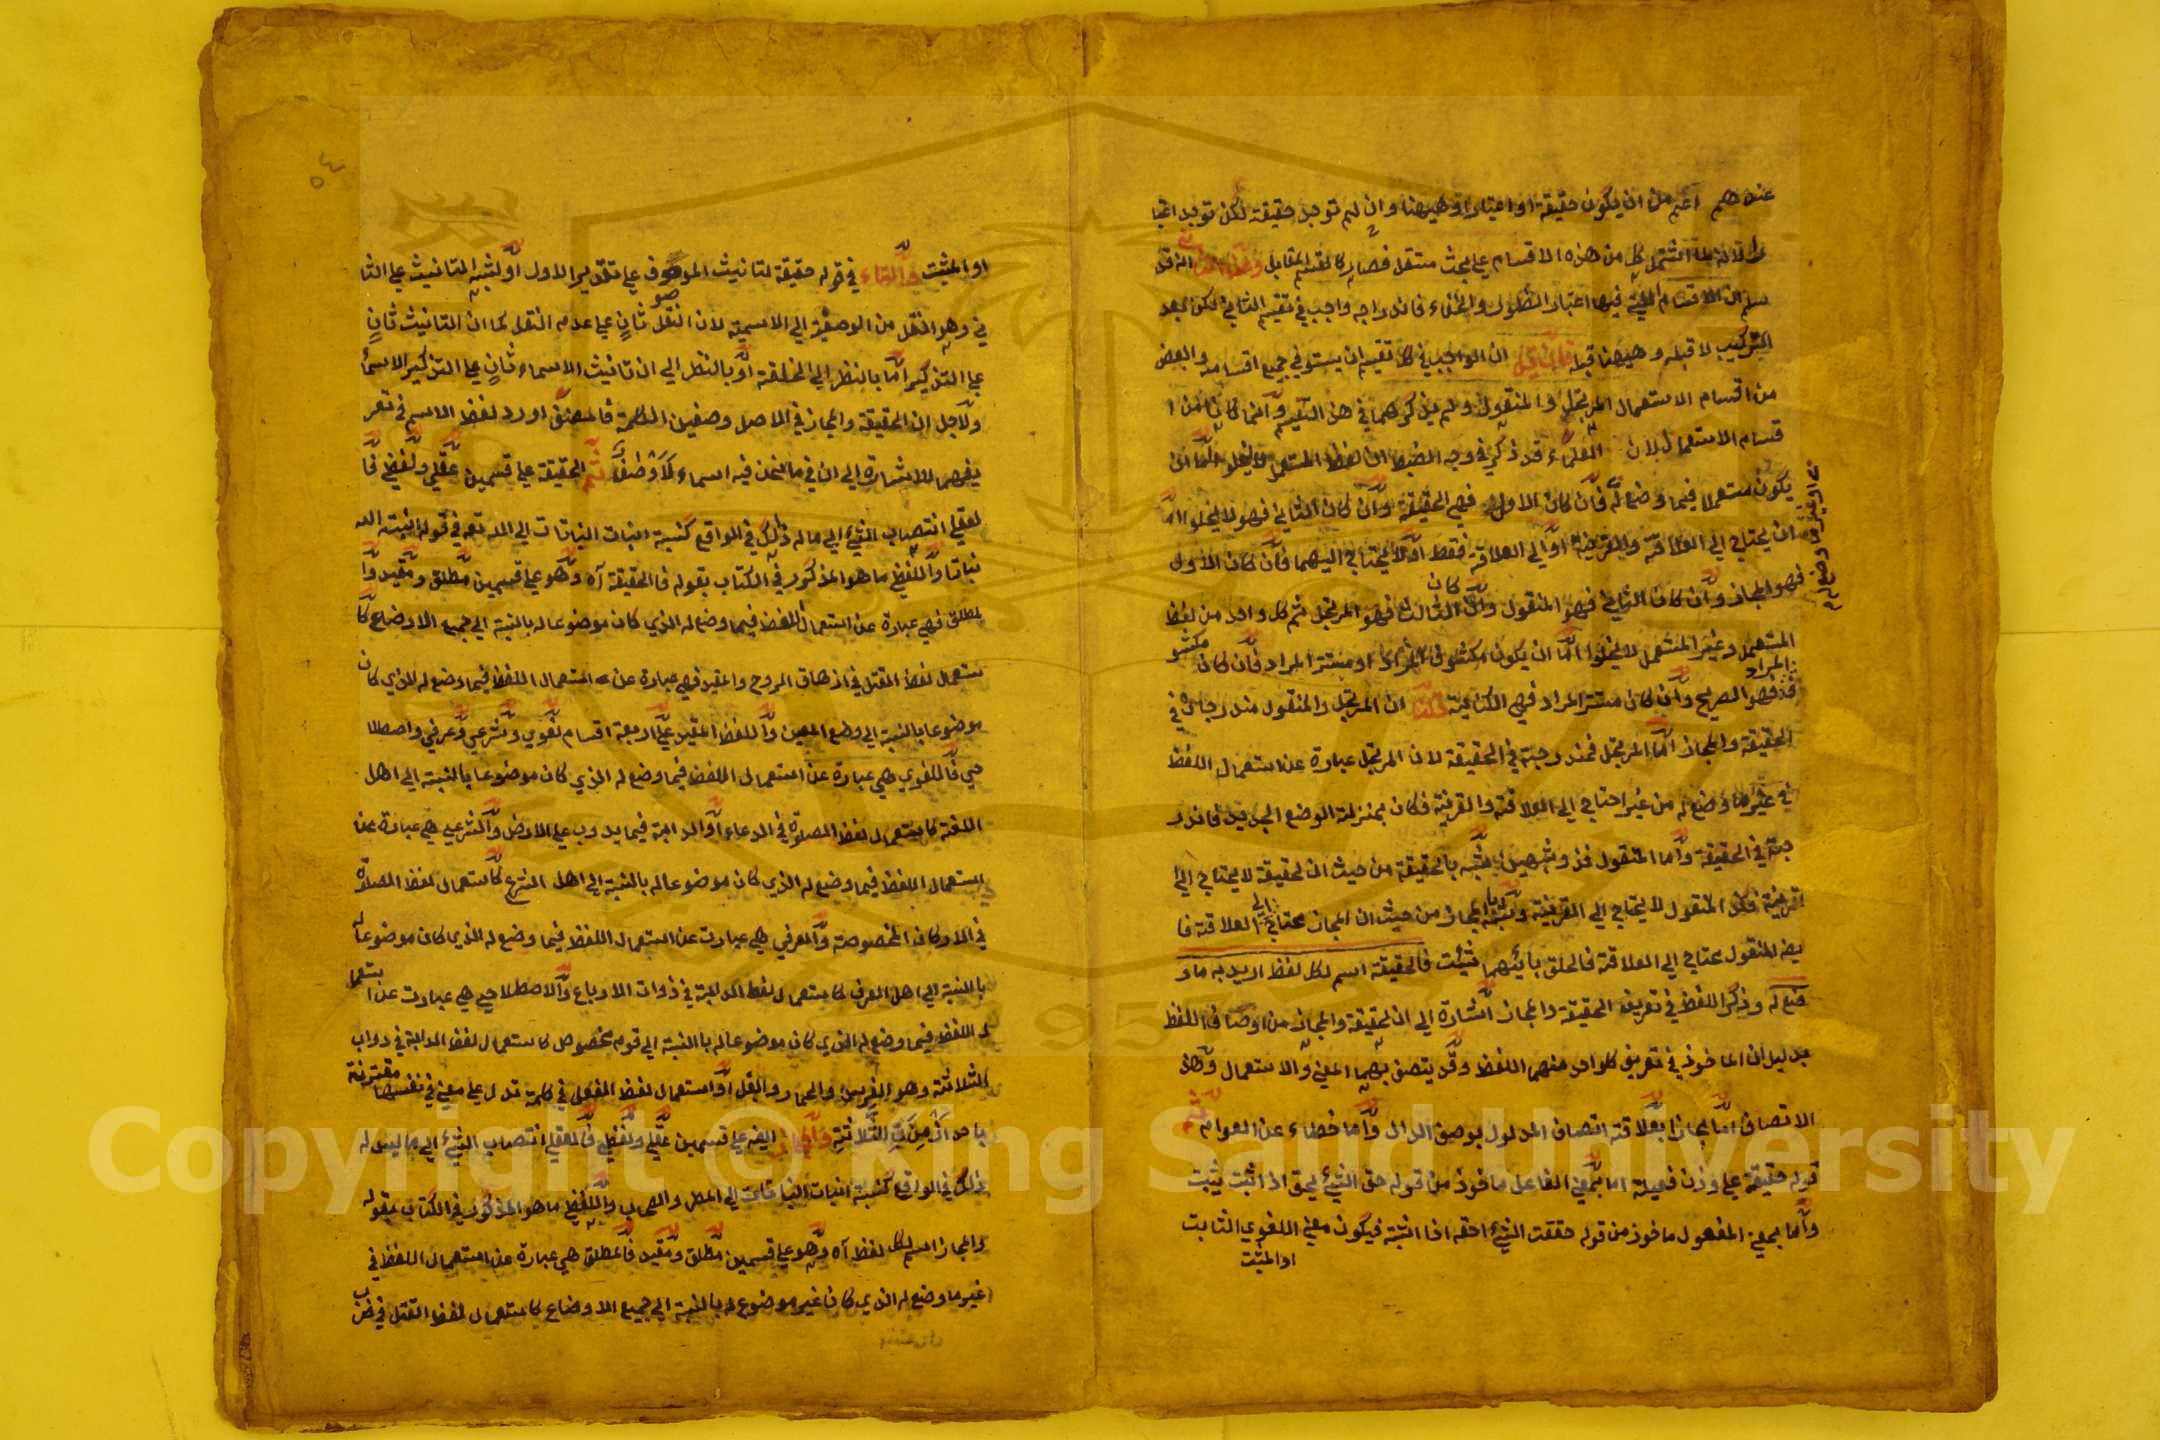 عندهم اعم من ان يكون حقيقة او اعتبارا وههنا وان لم توجد حقيقة لكن توجد اعتبا
را لانه لما اشتمل كل من هذه الاقسام على بحث مستقل فصار كالقسم المقابل
سلم ان الاقسام التي فيها اعتبار الظهور والخفاء فاندراجه واجب في تقسيم الثاني لكن بعد
التركيب لا قبله وههنا قبله فان قيل ان الواجب في كل تقسيم ان يستوفي جميع اقسامه والبعض
من اقسام الاستعمال المرتجل والمنقول ولم يذكرهما في هذا التقسيم وانما كانا من ا
قسام الاستعمال لان العلماء قد ذكر في وجه الضبط ان لفظ المستعمل لا يخلو اما ان
يكون مستعملا فيما وضع له فان كان الاول فهي الحقيقة وان كان الثاني فهو لا يخلوا اما
او غير ما وضع له
ان يحتاج الى العلاقة والقرينة او الى العلاقة فقط او لا يحتاج اليهما فان كان الاول
فهو المجاز وان كان الثاني فهو المنقول وان كان الثالث فهو المرتجل ثم كل واحد من لفظ
المستعمل وغير المستعمل لا يخلوا اما ان يكون مكشوف المراد او مستتر المراد فان كان مكشو
ف المراد فهو الصريح وان كان مستتر المراد فهي الكناية قلنا ان المرتجل والمنقول مندرجان في
الحقيقة والمجاز اما المرتجل فمندرجة في الحقيقة لان المرتجل عبارة عن استعمال اللفظ
في غير ما وضع له من غير احتياج الى العلاقة والقرينة فكان بمنزلة الوضع الجديد فاندر
جت في الحقيقة واما المنقول فذو شبهين يشبه بالحقيقة من حيث ان لحقيقة لا يحتاج الى
قرينة فكذا المنقول لا يحتاج الى القرينة ويشبه بالمجاز من حيث ان المجاز محتاج الى العلاقة فا
يضا المنقول محتاج الى العلاقة فالحق بايهما شئت فالحقيقة اسم لكل لفظ اريد به ما و
ضع له وذكر اللفظ في تعريف الحقيقة والمجاز اشارة الى ان لحقيقة والمجاز من اوصاف اللفظ
بدليل ان الماخوذ في تعريف كلواحد منهما اللفظ وقد يتصف بهما المعني والاستعمال وهذا
الاتصاف اما مجازا بعلاقة اتصاف المدلول بوصف الدال واما خطاء عن العوام ثم
قوله حقيقة على وزن فعيلة اما بمعني الفاعل ماخوذ من قوله حق الشيء يحق اذا ثبت يثبت
واما بمعني المفعول ماخوذ من قوله حققت الشيء احقه اذا اثبته فيكون معني اللغوي الثابت
او المثبت
او المثبت والتاء في قوله حقيقة لتانيث الموصوف على تقدير الاول او لشبه التانيث على الثا
ني وهو النقل من الوصفية الى الاسمية لان النقل ثان على عدم النقل كما ان التانيث ثان
على التذكير اما بالنظر الى الخلقة او بالنظر الى ان تانيث الاسماء ثان على التذكير الاسما
ولاجل ان الحقيقة والمجاز في الاصل وصفين الكلمة فالمصنف اورد لفظ الاسم في تعر
يفهما للاشارة الى ان في ما نحن فيه اسماء لا وصف ثم الحقيقة على قسمين عقلي ولفظي فا
لعقلي انتصاب الشيء الى ما له ذلك في الواقع كنسبة انبات النباتات الى الله تعه في قوله انبت الله
نباتا واللفظي ما هو المذكور في الكتاب بقوله فالحقيقة آه وهو على قسمين مطلق ومقيد وا
لمطلق فهي عبارة عن استعمال اللفظ فيما وضع له الذي كان موضوعا له بالنسبة الى جميع الاوضاع كا
ستعمال لفظ القتل في ازهاق الروح والمقيد فهي عبارة عن استعمال اللفظ فيما وضع له الذي كان
موضوعا بالنسبة الى وضع المعين واللفظ المقيد على اربعة اقسام لغوي وشرعي وعرفي واصطلا
حي فاللغوي هي عبارة عن استعمال اللفظ فيما وضع له الذي كان موضوعا بالنسبة الى اهل
اللغة كاستعمال لفظ الصلوة في الدعاء او الدابة فيما يدوب على الارض والشرعي هي عبارة عن
استعمال اللفظ فيما وضع له الذي كان موضوعا له بالنسبة الى اهل الشرع كاستعمال لفظ الصلوة
في الاركان المخصوصة والعرفي هي عبارت عن استعمال اللفظ فيما وضع له الذي كان موضوعا له
بالنسبة الى اهل العرف كاستعمال لفظ الدابة في ذوات الاربع والاصطلاحي هي عبارت عن استعما
ل اللفظ فيما وضع له الذي كان موضوعا له بالنسبة الى قوم مخصوص كاستعمال لفظ الدابة في دواب
الثلاثة وهو الفرس والحمار والبغل او استعمال لفظ الفعل في كلمة تدل على معني في نفسها مقترنة
باحد ازمنة الثلاثة والمجاز ايضا على قسمين عقلي ولفظي فالعقلي انتصاب الشيء الى ما ليس له
ذلك في الواقع كنسبة انبات النباتات الى المطر والسحاب واللفظي ما هو المذكور في الكتاب بقوله
والمجاز اسم لكل لفظ آه وهو على قسمين مطلق ومقيد فالمطلق هي عبارة عن استعمال اللفظ في
غير ما وضع له الذي كان غير موضوع له بالنسبة الى جميع الاوضاع كاستعمال لفظ القتل في ضرب
Copyright © King Saud University